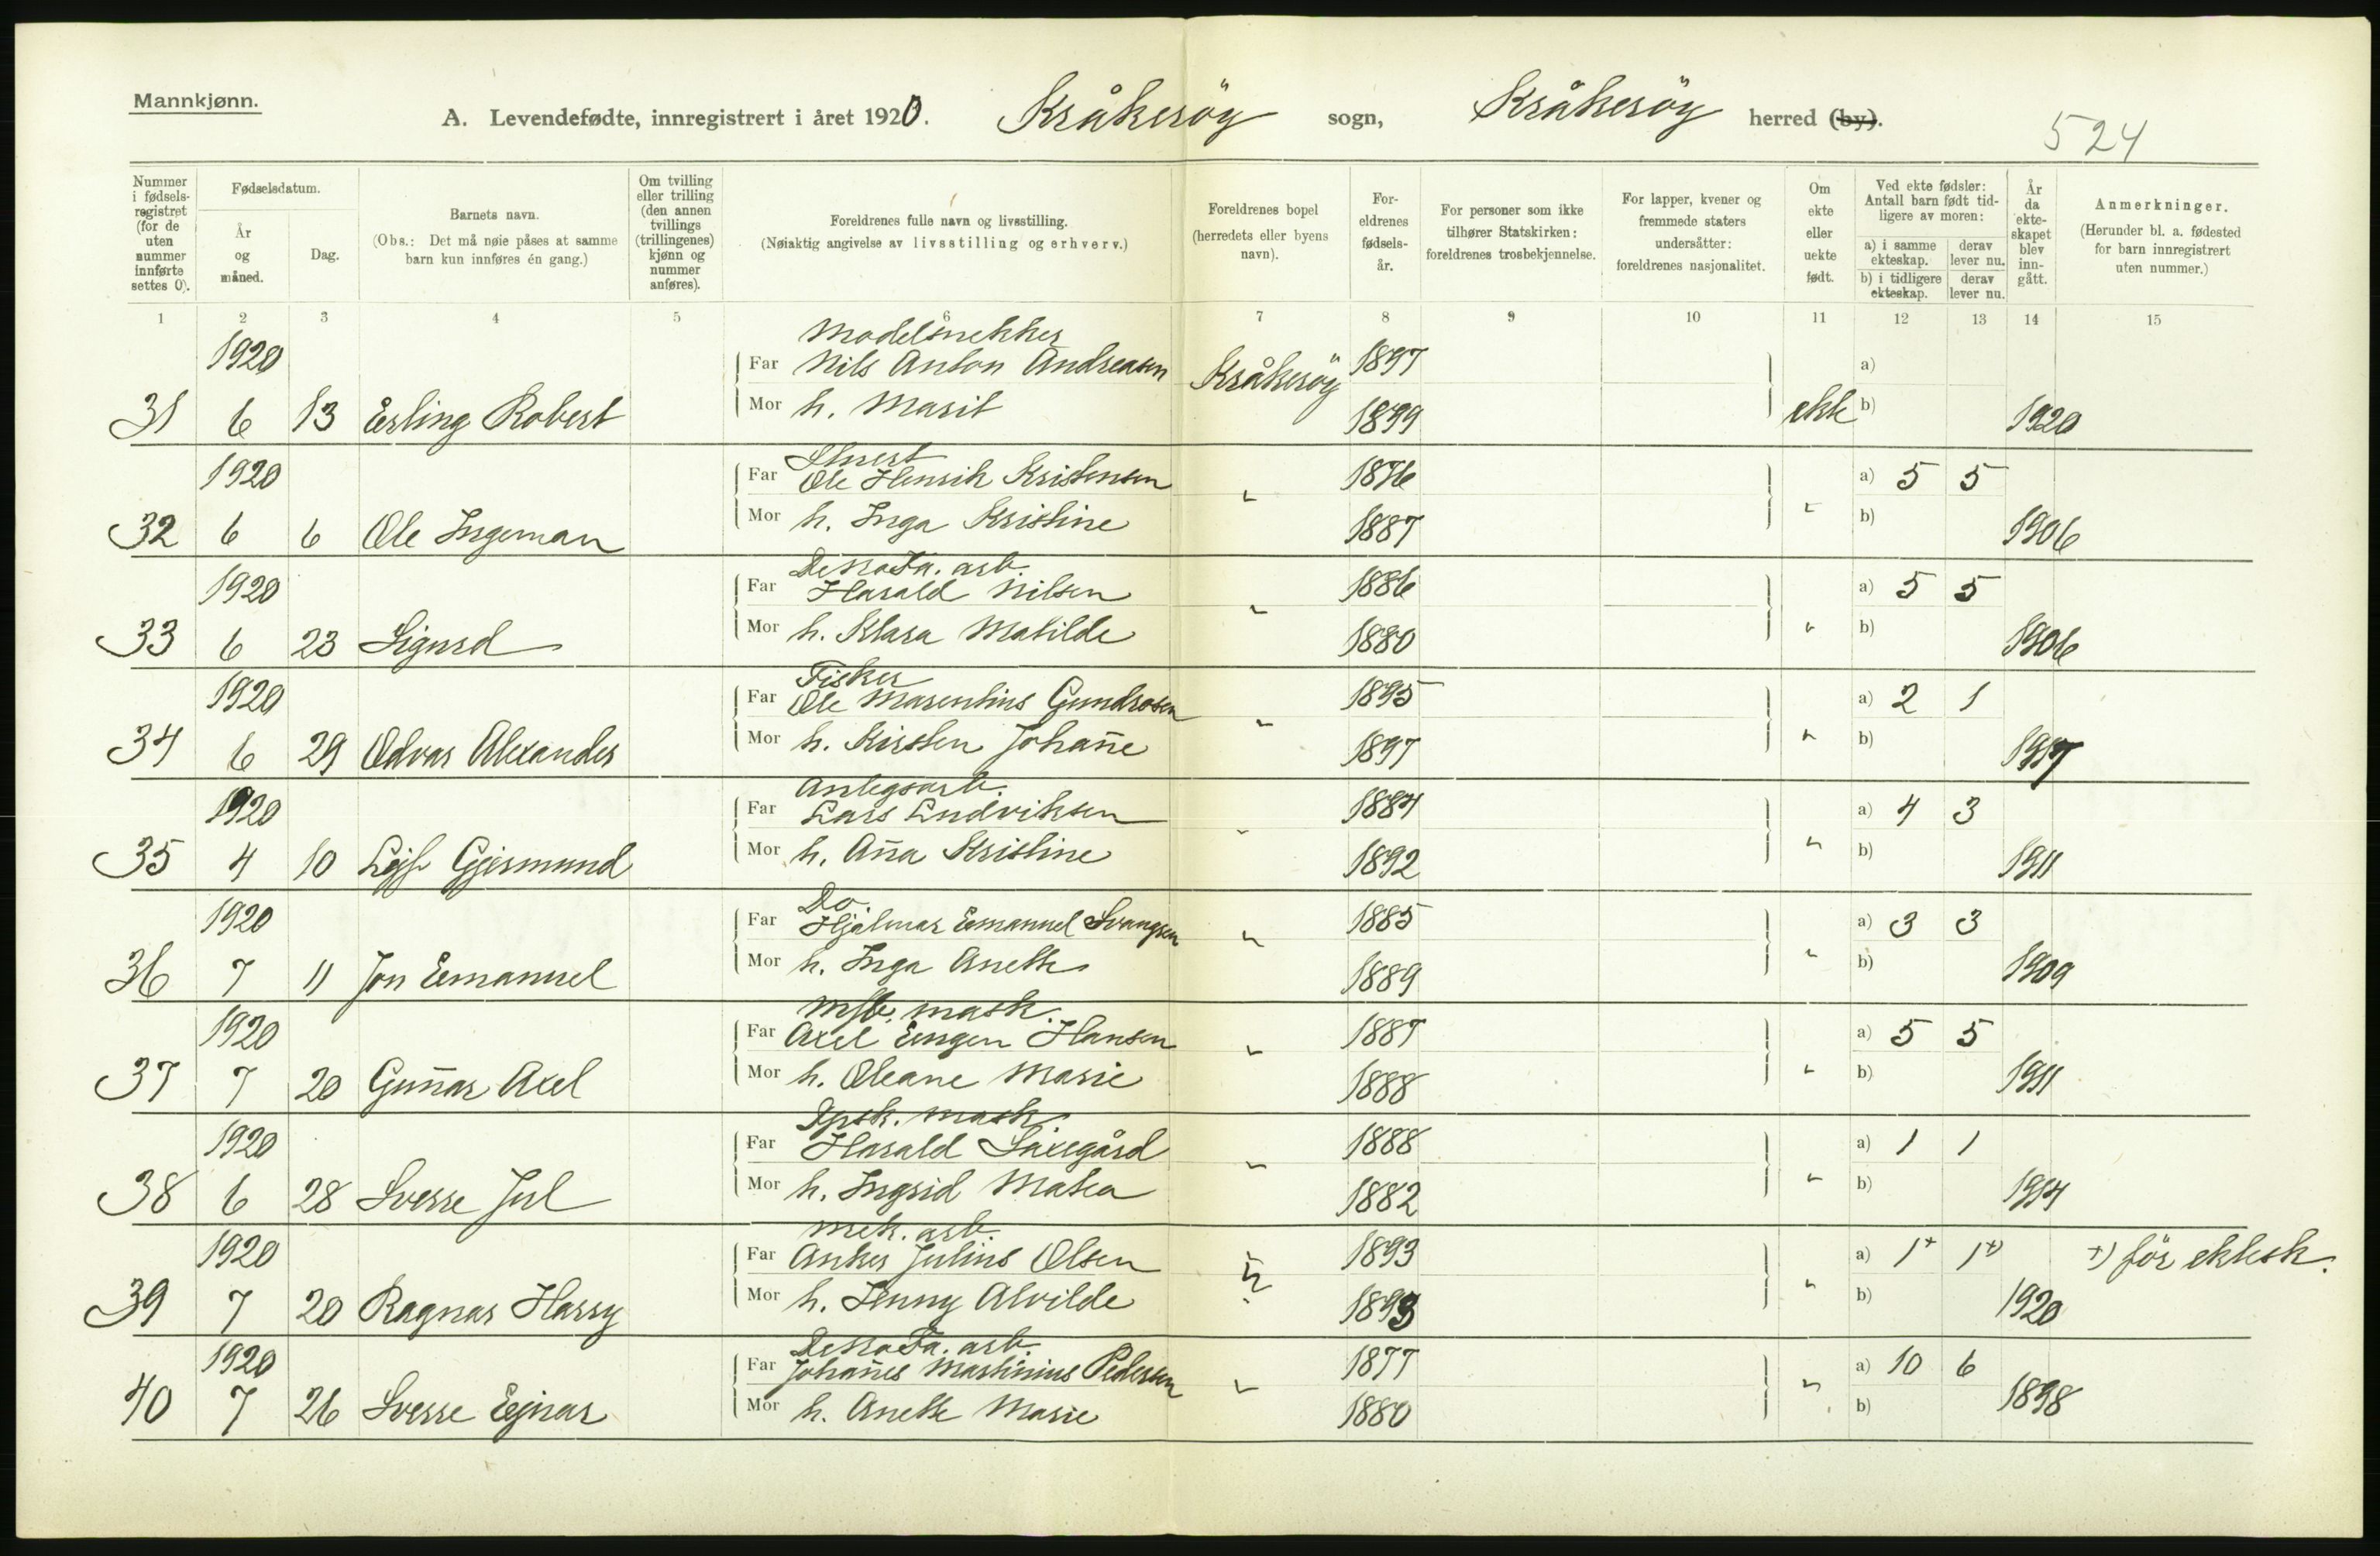 Mannkjønn.
A. Levendefødte, innregistrert i året 1920. Kråkeröy sogn, Kråkeröy herred (by).
524
Nummer i fødselsregistret (for de uten nummer innførte settes 0).
Fødselsdatum.
År og måned.
Dag.
Barnets navn.
(Obs.: Det må nøie påses at samme barn kun innføres én gang.)
Om tvilling eller trilling (den annen tvillings (trillingenes) kjønn og nummer anføres).
Foreldrenes fulle navn og livsstilling.
(Nøiaktig angivelse av livsstilling og erhverv.)
Foreldrenes bopel (herredets eller byens navn).
Foreldrenes fødselsår.
For personer som ikke tilhører Statskirken: foreldrenes trosbekjennelse.
For lapper, kvener og fremmede staters undersåtter: foreldrenes nasjonalitet.
Om ekte eller uekte født.
Ved ekte fødsler: Antall barn født tidligere av moren:
a) i samme ekteskap. derav lever nu.
b) i tidligere ekteskap. derav lever nu.
År da ekteskapet blev inngått.
Anmerkninger.
(Herunder bl. a. fødested for barn innregistrert uten nummer.)
1 2 3 4 5 6 7 8 9 10 11 12 13 14 15
Modelsnekker
1920 Far Nils Anton Andreasen Kråkeröy 1897 a)
31 6 13 Erling Robert Mor h. Marit 1899 ekte b) 1920
1920 Far Ole Henrik Kristensen " 1876 a) 5 5
32 6 6 Ole Ingeman Mor h. Inga Kristine 1887 " b) 1906
arb.
1920 Far Harald Nilsen " 1886 a) 5 5
33 6 23 Sigurd Mor h. Klara Matilde 1880 " b) 1906
Fisker
1920 Far Ole Marentius Gundrosen " 1895 a) 2 1
34 6 29 Odvar Alexander Mor h. Kirsten Johan̄e 1897 " b) 1917
Anlegsarb.
1920 Far Lars Ludviksen " 1884 a) 4 3
35 4 10 Lejf Gjermund Mor h. An̄a Kristine 1892 " b) 1911
Do.
1920 Far Hjalmar Emanuel Svangsen " 1885 a) 3 3
36 7 11 Jon Emanuel Mor h. Inga Anette 1889 " b) 1909
mask.
1920 Far Axel Eugen Hansen " 1887 a) 5 5
37 7 20 Gun̄ar Axel Mor h. Oleane Marie 1888 " b) 1911
mask.
1920 Far Harald Saxegård " 1888 a) 1 1
38 6 28 Sverre Jul Mor h. Ingrid Matea 1882 " b) 1914
Mek. arb.
1920 Far Anker Julius Olsen 1893 a) 1+ 1+) +) för ektesk.
39 7 20 Ragnar Harry Mor h. Jenny Alvilde 1893 " b) 1920
arb.
1920 Far Johan̄es Martinius Pedersen " 1877 a) 10 6
40 7 26 Sverre Ejnar Mor h. Anette Marie 1880 " b) 1898